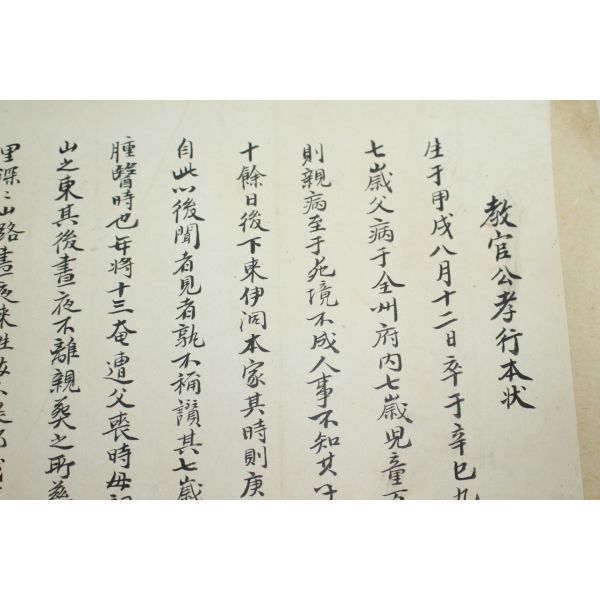 教官公孝行本状
生于甲戌八月十二日卒于辛巳九
七歲父病于全州府内七歲児童百
則親病至于死境不成人事不知其
十餘日後下來伊洞本家其時則庚
自此以後聞者見者孰不稱讃其七歲
腫醫時也年将十三奄遭父喪時母
山之東其後晝夜不離親葬之所
里深〻山路晝夜來往